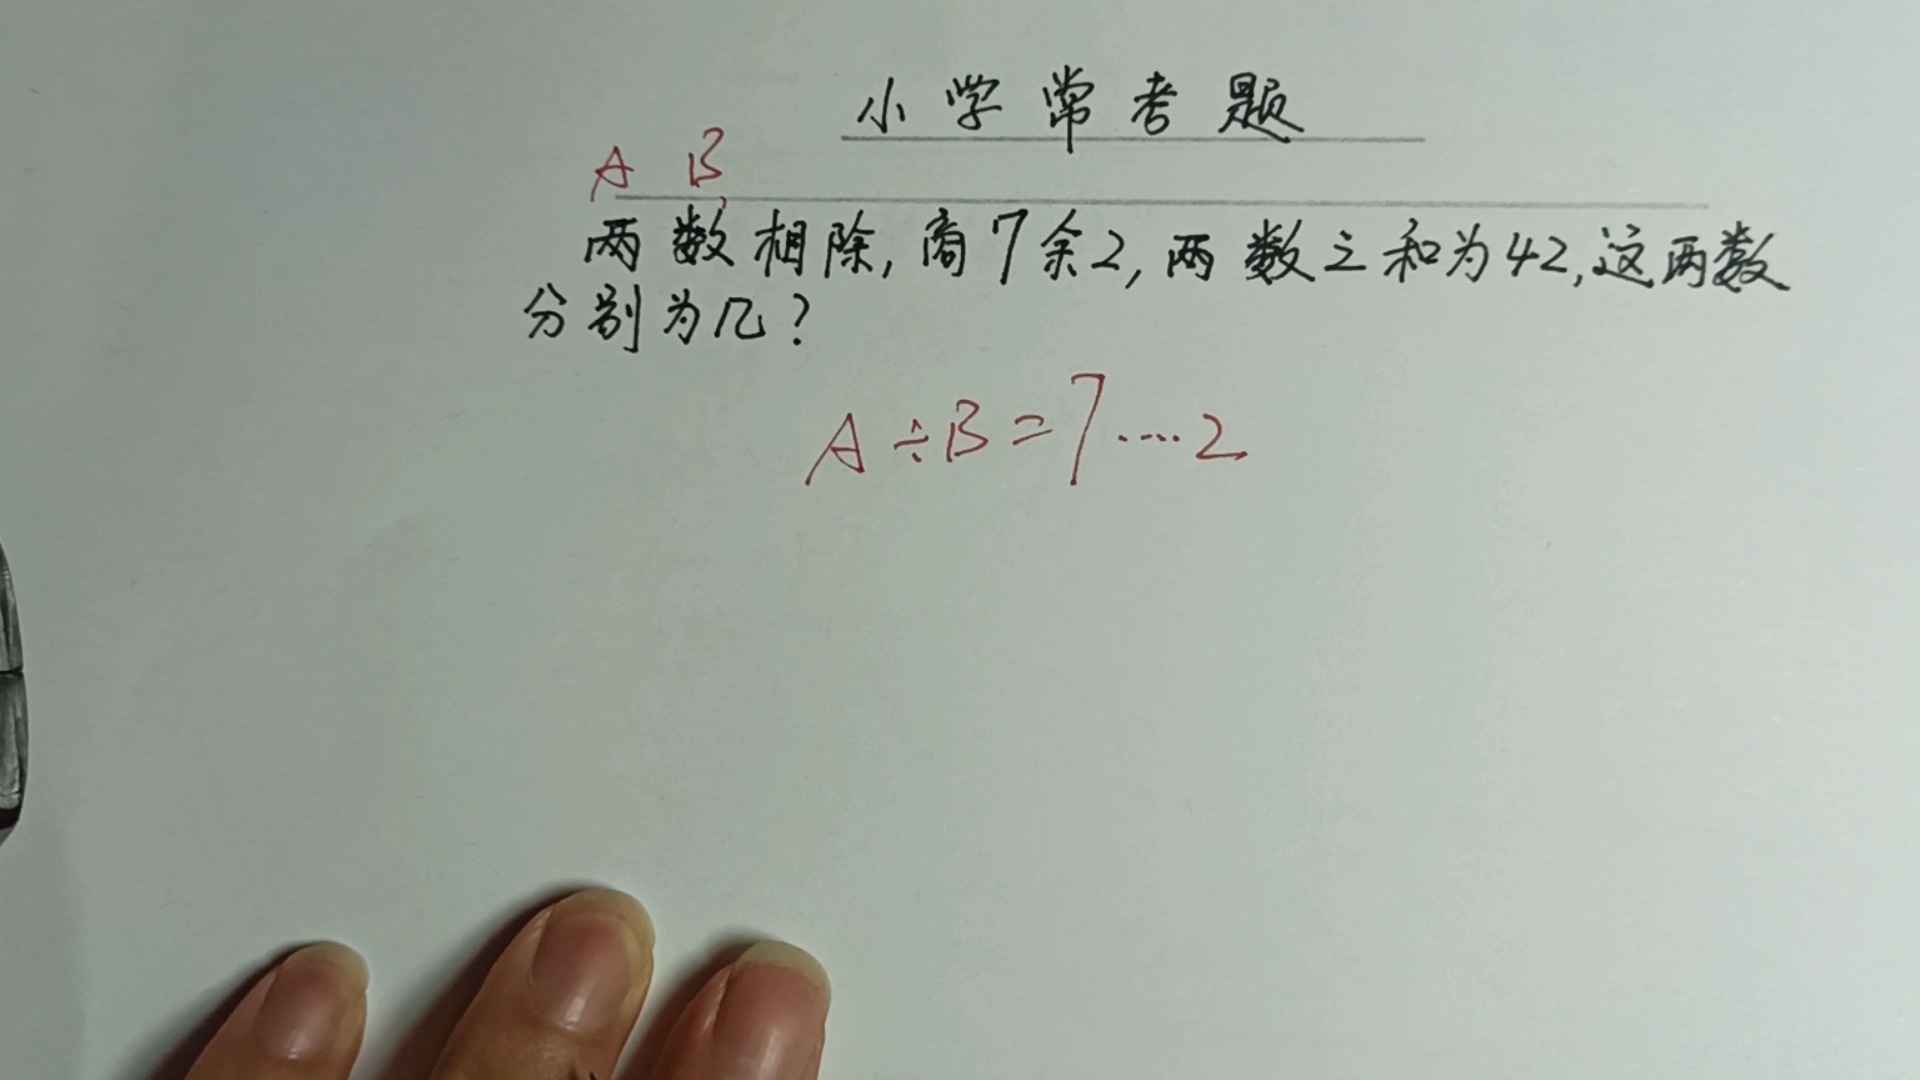 小学常考题
A B
两数相除,商7余2,两数之和为42,这两数
分别为几?
A÷B=7····2